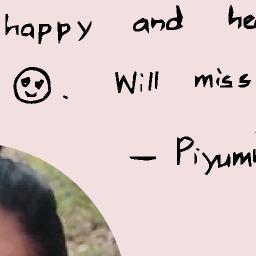 happy and he
😍. Will miss
— Piyum